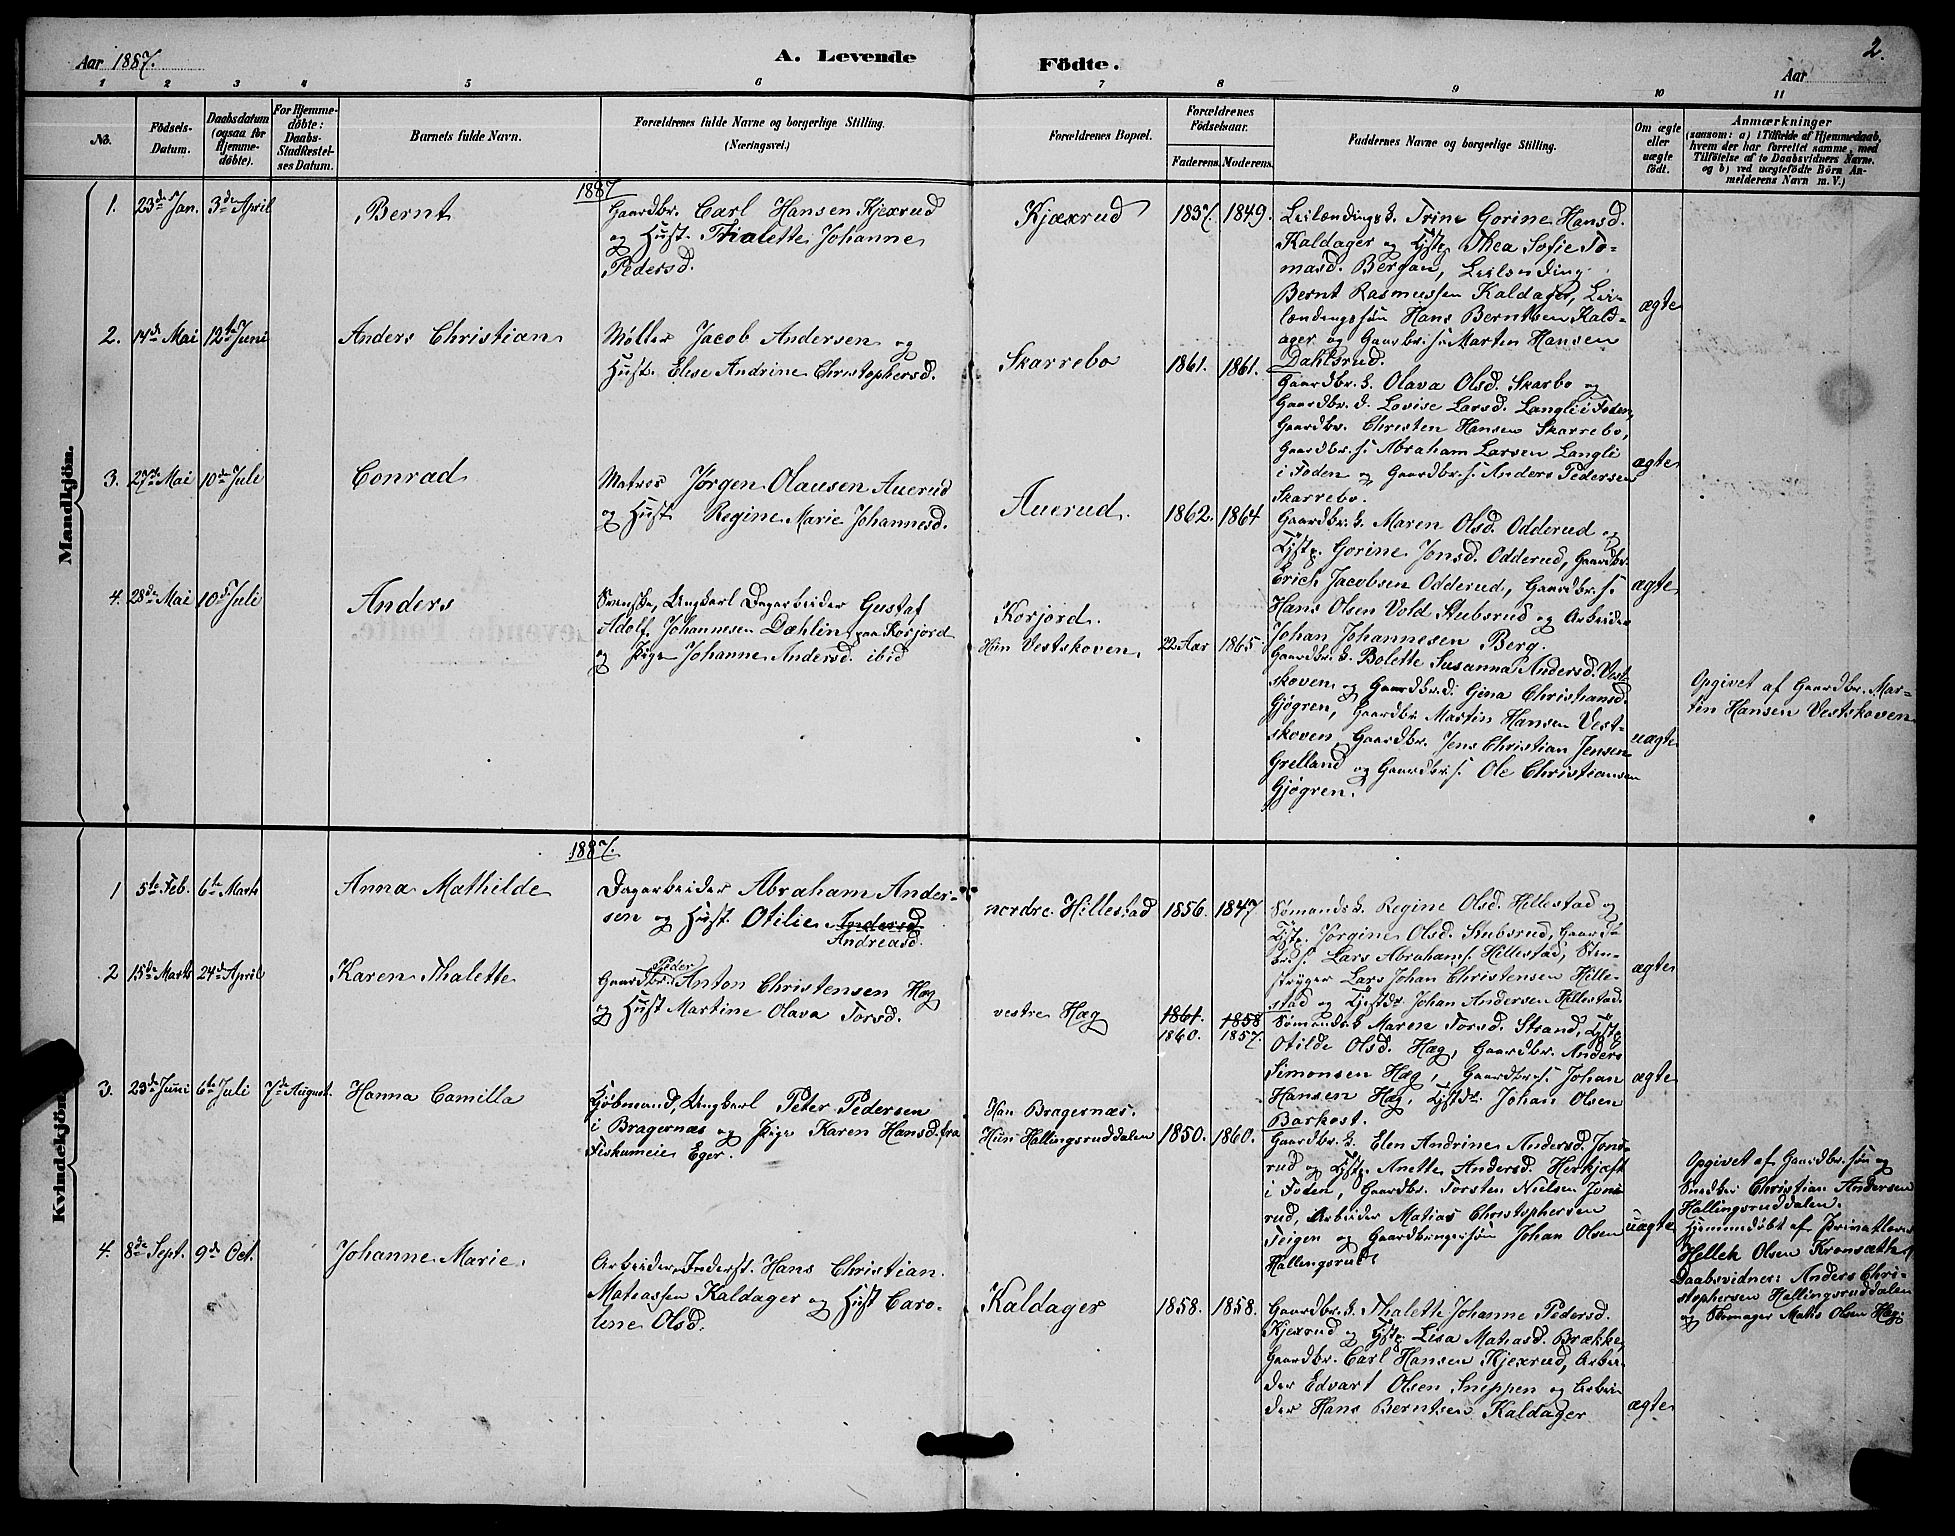 Aar 1887.
A. Levende
Födte.
Aar
2.
1 2 3 4 5 6 7 8 9 10 11
No.
Födsels-
Datum.
Daabsdatum
(ogsaa for
Hjemme-
döbte).
For Hjemme-
döbte:
Daabs-
Stadfæstel-
ses Datum.
Barnets fulde Navn.
Forældrenes fulde Navne og borgerlige Stilling.
(Næringsvei.)
Forældrenes Bopæl.
Forældrenes
Födselsaar.
Faderens. Moderens.
Faddernes Navne og borgerlige Stilling.
Om ægte
eller
uægte
födt.
Anmærkninger
(saasom: a) i Tilfælde af Hjemmedaab,
hvem der har forrettet samme, med
Tilföielse af to Daabsvidners Navne.
og b) ved uægtefödte Börn An-
melderens Navn m. V.)
Mandkjön.
1887
1.
23de Jan.
3de April
Bernt
Gaardbr. Carl Hansen Kjexrud
og Hust. Thalette Johanne
Pedersd.
Kjæxrud
1837.
1849.
Leilændingsk. Trine Gorine Hansd.
Kaldager og Tjstp. Thea Sofie To-
masd. Bergan, Leilænding
Bernt Rasmussen Kaldager, Lei-
lændingssøn Hans Berntsen Kald-
ager og Gaardbr. s. Martin Hansen
Dahlsrud.
ægte
2.
14de Mai
12te Juni
Anders Christian
Møller Jacob Andersen og
Hust. Elise Andrine Christophersd.
Skarrebo
1861.
1861.
Gaardbr. k. Olava Olsd. Skarbo og
Gaardbr. d. Lovise Larsd. Langli i Foden,
Gaardbr. Christen Hansen Skarrebo,
Gaardbr. s. Abraham Larsen Langli
i Foden og Gaardbr. s. Anders Pedersen
Skarrebo.
ægte
3.
27de Mai
10de Juli
Conrad
Matros Jørgen Olausen Auerud
og Hust. Regine Marie Johannesd.
Auerud.
1862.
1864
Gaardbr. k. Maren Olsd. Odderud og
Tjstp. Gorine Jonsd. Odderud, Gaardbr.
Erich Jacobsen Odderud, Gaardbr. s.
Hans Olsen Vold Stubsrud og Arbeider
Johan Johannesen Berg.
ægte
4.
28de Mai
10de Juli
Anders
Svenske, Ungkarl Dagarbeider Gustaf
Adolf Johannesen Dæhlin paa Korjord
og Pige Johanne Andersd. ibid
Korjord.
Hun Vestskoven.
22 Aar
1865.
Gaardbr. k. Bolette Susanna Andersd. Vest-
skoven og Gaardbr. d. Gina Christiansd.
Gjøgren, Gaardbr. Martin Hansen Vest-
skoven, Gaardbr. Jens Christian Jensen
Grelland og Gaardbr. s. Ole Christiansen
Gjøgren.
uægte
Opgivet af Gaardbr. Mar-
tin Hansen Vestskoven
Kvindekjön.
1887.
1
5te Feb.
6te Marts
Anna Mathilde
Dagarbeider Abraham Ander-
sen og Hust. Otilie Andersd.
Andreasd.
nordre Hillestad
1856.
1847.
Sømandsk. Regine Olsd. Hillestad og
Tjstp. Jørgine Olsd. Stubsrud, Gaard-
br. s. Lars Abrahams. Hillestad, Sten-
stryger Lars Johan Christensen Hille-
stad og Tjstdr. Johan Andersen Hillestad.
ægte
2
15de Marts
24de April
Karen Thalette
Peder
Gaardbr. Anton Christensen Hæg
og Hust Martine Olava Torsd.
vestre Hæg
1861.
1860.
1858
1857.
Sømandsk. Maren Torsd. Strand, Tjstp.
Otilde Olsd. Hæg, Gaardbr. Anders
Simonsen Hæg, Gaardbr. s. Johan
Hansen Hæg, Tjstdr. Johan Olsen
Barkost.
ægte
3.
23de Juni
6te Juli
7de August.
Hanna Camilla
Kjøbmand, Ungkarl Peter Pedersen
i Bragernæs og Pige Karen Hansd. fra
Fiskumeie Eger.
Han Bragernæs.
Hun Hallingsruddalen
1850.
1860.
Gaardbr. k. Elen Andrine Andersd. Jons-
rud og Tjstp. Anette Andersd. Herkjæst
i Foden, Gaardbr. Torsten Nielsen Jons-
rud, Arbeider Matias Christophersen
Teigen og Gaardbrugersøn Johan Olsen
Hallingsrud.
uægte
Opgivet af Gaardbr. søn og
Snedker Christian Andersen
Hallingsruddalen.
Hjemmedøbt af Privatlærer
Hellek Olsen Kronsæth
Daabsvidner: Anders Chri-
stophersen Hallingsruddalen
og Skomager Mathis Olsen Hæg.
4.
8de Sept.
9de Oct.
Johanne Marie.
Arbeider, Inderst. Hans Christian
Matiassen Kaldager og Hust Caro-
line Olsd.
Kaldager
1858.
1858.
Gaardbr. k. Thalette Johanne Pedersd.
Kjexrud og Tjstp. Lisa Matiasd. Brække,
Gaardbr. Carl Hansen Kjexrud, Arbei-
der Edvart Olsen Sneppen og Arbei-
der Hans Berntsen Kaldager
ægte